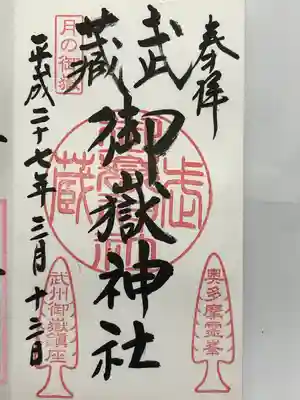 奉拝
武蔵御嶽神社
平成二十七年三月十三日
月の御嶽
奥多摩霊峯
武州御嶽鎮座